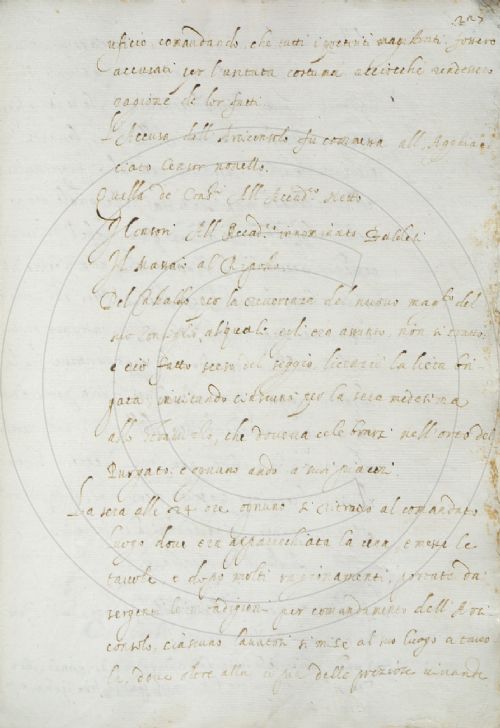 227
uficio, comandando, che tutti i passati mag.ti fossero
accusati per l'usitata costuma acciocche rendessero
ragione de lor fatti
L'Accusa dell'Arciconsolo fu commessa all'Agghiac
ciato Censor novello.
Quella de Cons.ri All'Accad.co Netto
I Censori All'Accad.co innominato
Il Massaio al Ripolto.
Del Castaldo per la del nuovo mag.to del
suo Consiglio, al quale egli era assunto, non si trattò
e ciò fatto sceso del seggio, licenziò la lieta bri-
gata, invitando ciascuno per la sera medesima
allo Stravizzo, che doveva celebrarsi nell'orto del
Purgato, e ognuno andò a suoi piaceri.
La sera alle 24 ore ognuno si ritrovò al comandato
luogo dove era apparecchiata la cena, e messe le
tavole, e dopo molti ragionamenti, portate da
sergenti le per comandamento dell'Arci
consolo, ciascuno lavatosi si mise al suo luogo a tavo
la, dove oltre alla più delle preziose vivande